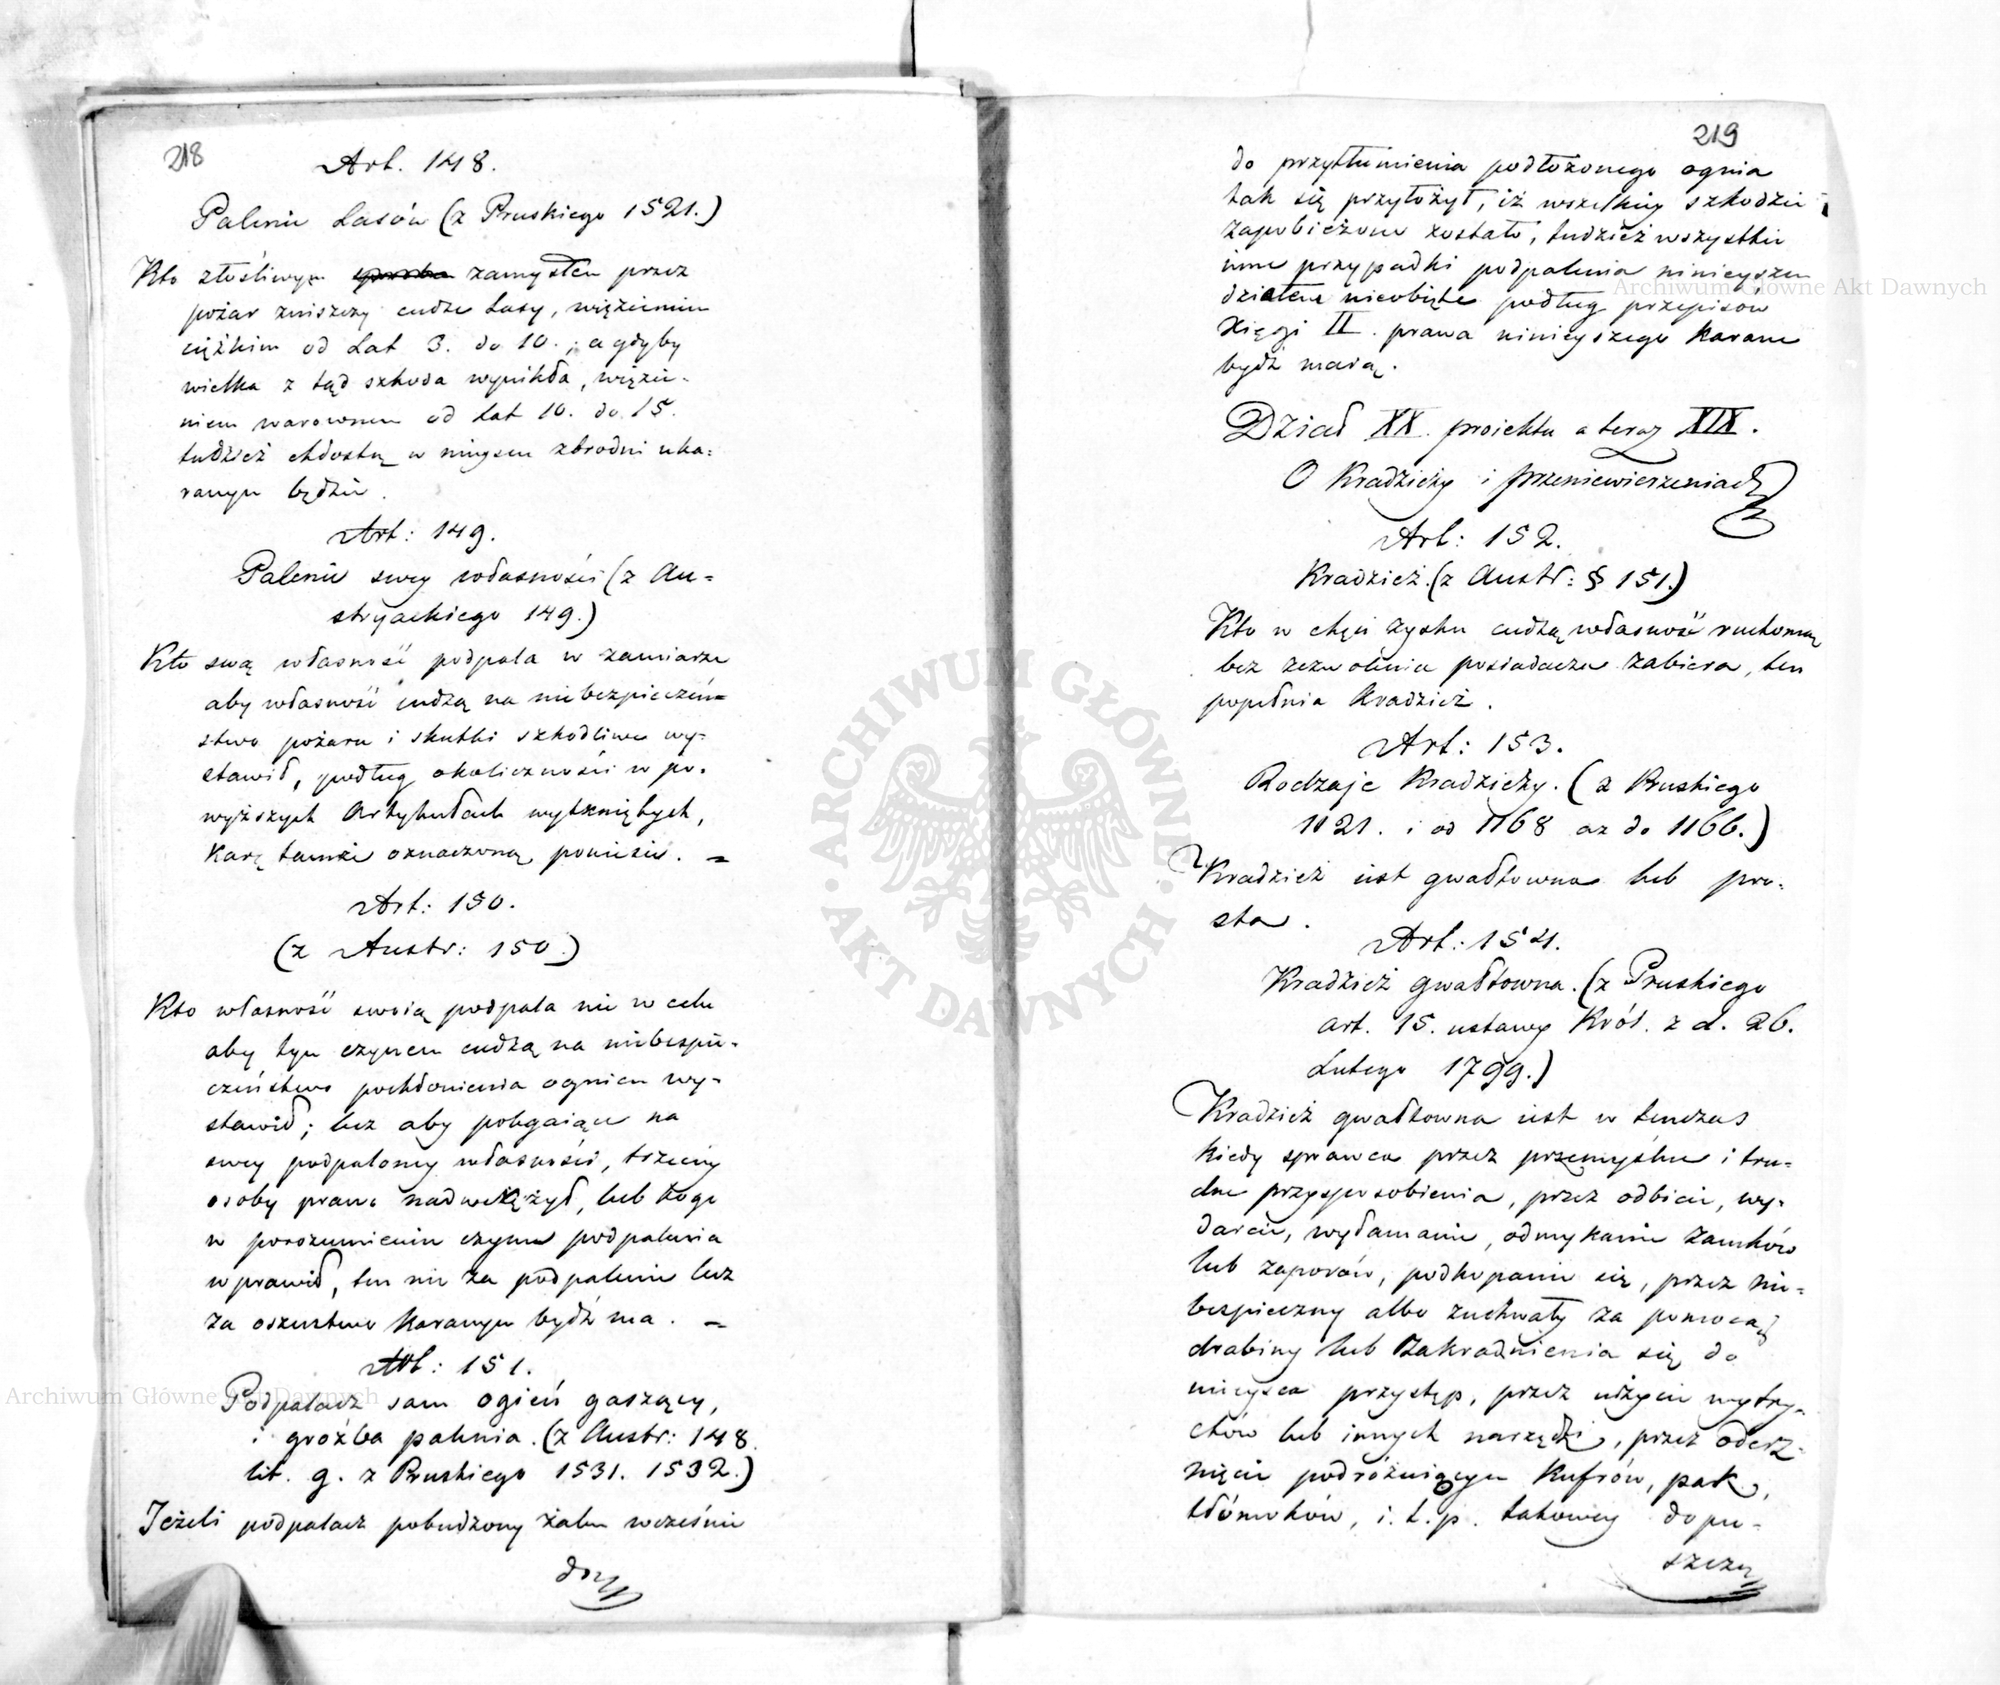 218
Art. 148.
Palenie Lasów (z Pruskiego 1521.)
Kto złośliwym zamysłem przez
pożar zniszczy cudze Lasy, więzieniem
ciężkim od Lat 3. do 10.; a gdyby
wielka z tąd szkoda wynikła, więzie-
niem warownem od Lat 10. do 15.
tudzież chłostą w mieyscu zbrodni uka-
ranym będzie.
Art: 149.
Palenie swey własności (z Au-
stryackiego 149.)
Kto swą własność podpala w zamiarze
aby własność cudzą na niebezpieczeń-
stwo pożaru i skutki szkodliwe wy-
stawił, podług okoliczności w po-
wyższych Artykułach wytkniętych,
karę tamże oznaczoną poniesie. =
Art: 150.
(z Austr: 150.)
Kto własność swoią podpala nie w celu
aby tym czynem cudzą na niebespie-
czeństwo pochłonienia ogniem wy-
stawił; lecz aby polegaiące na
swey podpaloney własności, trzeciey
osoby prawa nadwerężył, lub kogo
w porozumieniu czynu podpalenia
wprawił, ten nie za podpalenie lecz
za oszustwo karanym bydź ma. =
Art: 151.
Podpalacz sam ogień gaszący,
i groźba palenia. (z Austr: 148.
lit. g. z Pruskiego 1531. 1532.)
Jeżeli podpalacz pobudzony żalem wcześnie
do
219
do przytłumienia podłożonego ognia
tak się przyłożył, iż wszelkiey szkodzie
zapobieżono zostało, tudzież wszystkie
inne przypadki podpalenia ninieyszem
działem nieobięte podług przepisów
Xięgi II. prawa ninieyszego karane
bydź maią.
Dział XX. proiektu a teraz XIX.
O Kradzieży i przeniewierzeniach
Art: 152.
Kradzież. (z Austr: § 151.)
Kto w chęci zysku cudzą własność ruchomą
bez zezwolenia posiadacza zabiera, ten
popełnia Kradzież.
Art: 153.
Rodzaje Kradzieży. (z Pruskiego
1121. i od 1168 az do 1166.)
Kradzież iest gwałtowna lub pro-
sta.
Art: 154.
Kradzież gwałtowna. (z Pruskiego
art. 15. ustawy Król. z d. 26.
Lutego 1799.)
Kradzież gwałtowna iest w tenczas
kiedy sprawca przez przemyślne i tru-
dne przysposobienia, przez odbicie, wy-
darcie, wyłamanie, odmykanie zamków
lub zaporów, podkopanie się, przez nie-
bespieczny albo zuchwały za pomocą
drabiny lub zakradnienia się do
mieysca przystęp, przez użycie wytry-
chów lub innych narzędzi, przez oderz-
nięcie podróżniącym Kufrów, pak,
tłómoków, i. t. p. takowey dopu-
szcza
Archiwum Główne Akt Dawnych
Archiwum Główne Akt Dawnych
ARCHIWUM GŁÓWNE · AKT DAWNYCH ·